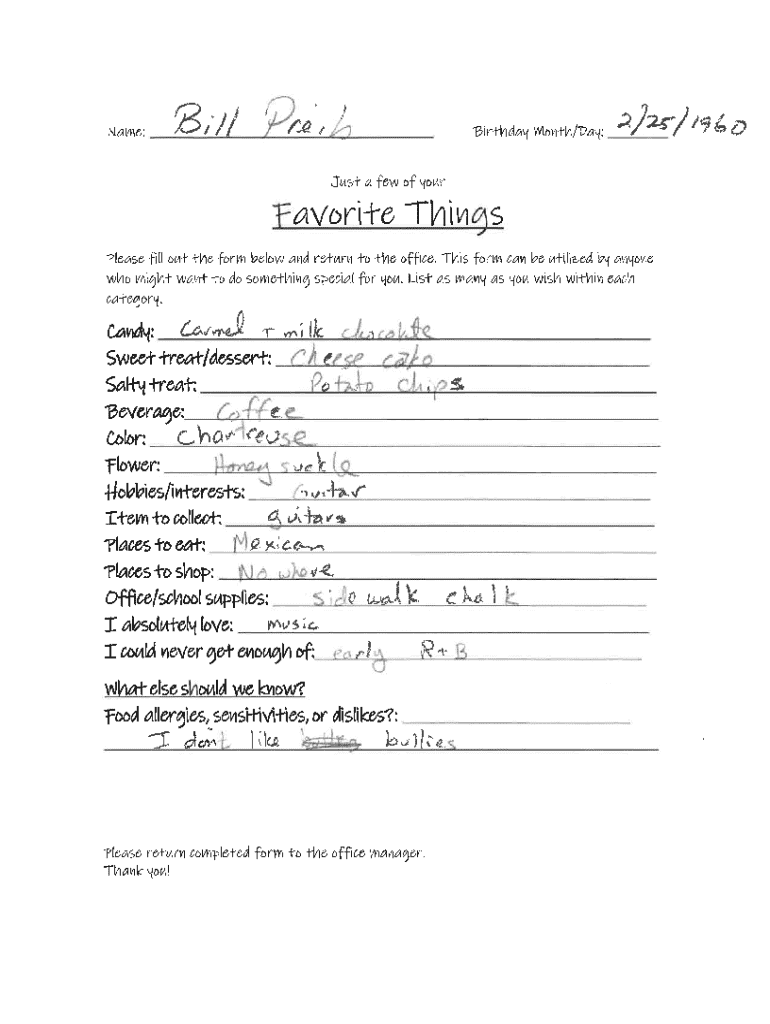 Name: Bill Preib Birthday Month/Day: 2/25/1960
Just a few of your
Favorite Things
Please fill out the form below and return to the office. This form can be utilized by anyone
who might want to do something special for you. List as many as you wish within each
category.
Candy: Carmel + milk chocolate
Sweet treat/dessert: Cheese cake
Salty treat: Potato chips
Beverage: Coffee
Color: Chartreuse
Flower: Honey suckle
Hobbies/interests: Guitar
Item to collect: guitars
Places to eat: Mexican
Places to shop: No where
Office/school supplies: side walk chalk
I absolutely love: music
I could never get enough of: early R+B
What else should we know?
Food allergies, sensitivities, or dislikes?:
I dont like bullies
Please return completed form to the office manager.
Thank you!